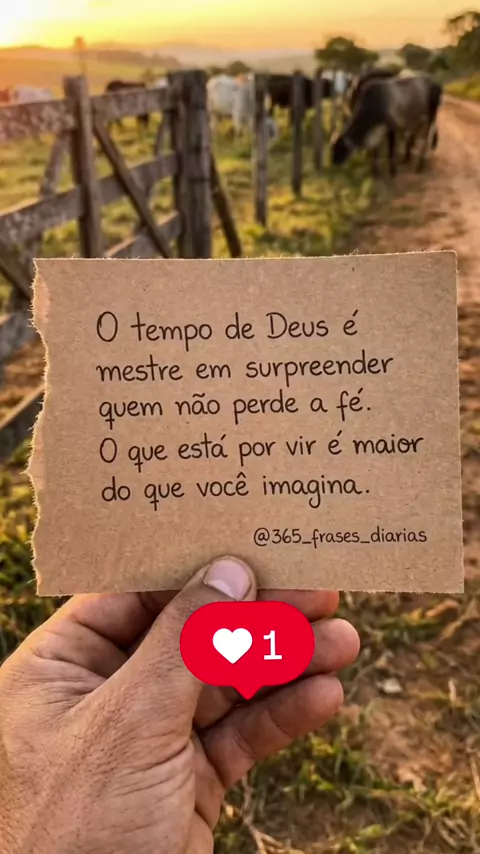 O tempo de Deus é
mestre em surpreender
quem não perde a fé.
O que está por vir é maior
do que você imagina.
@365_frases_diarias
1